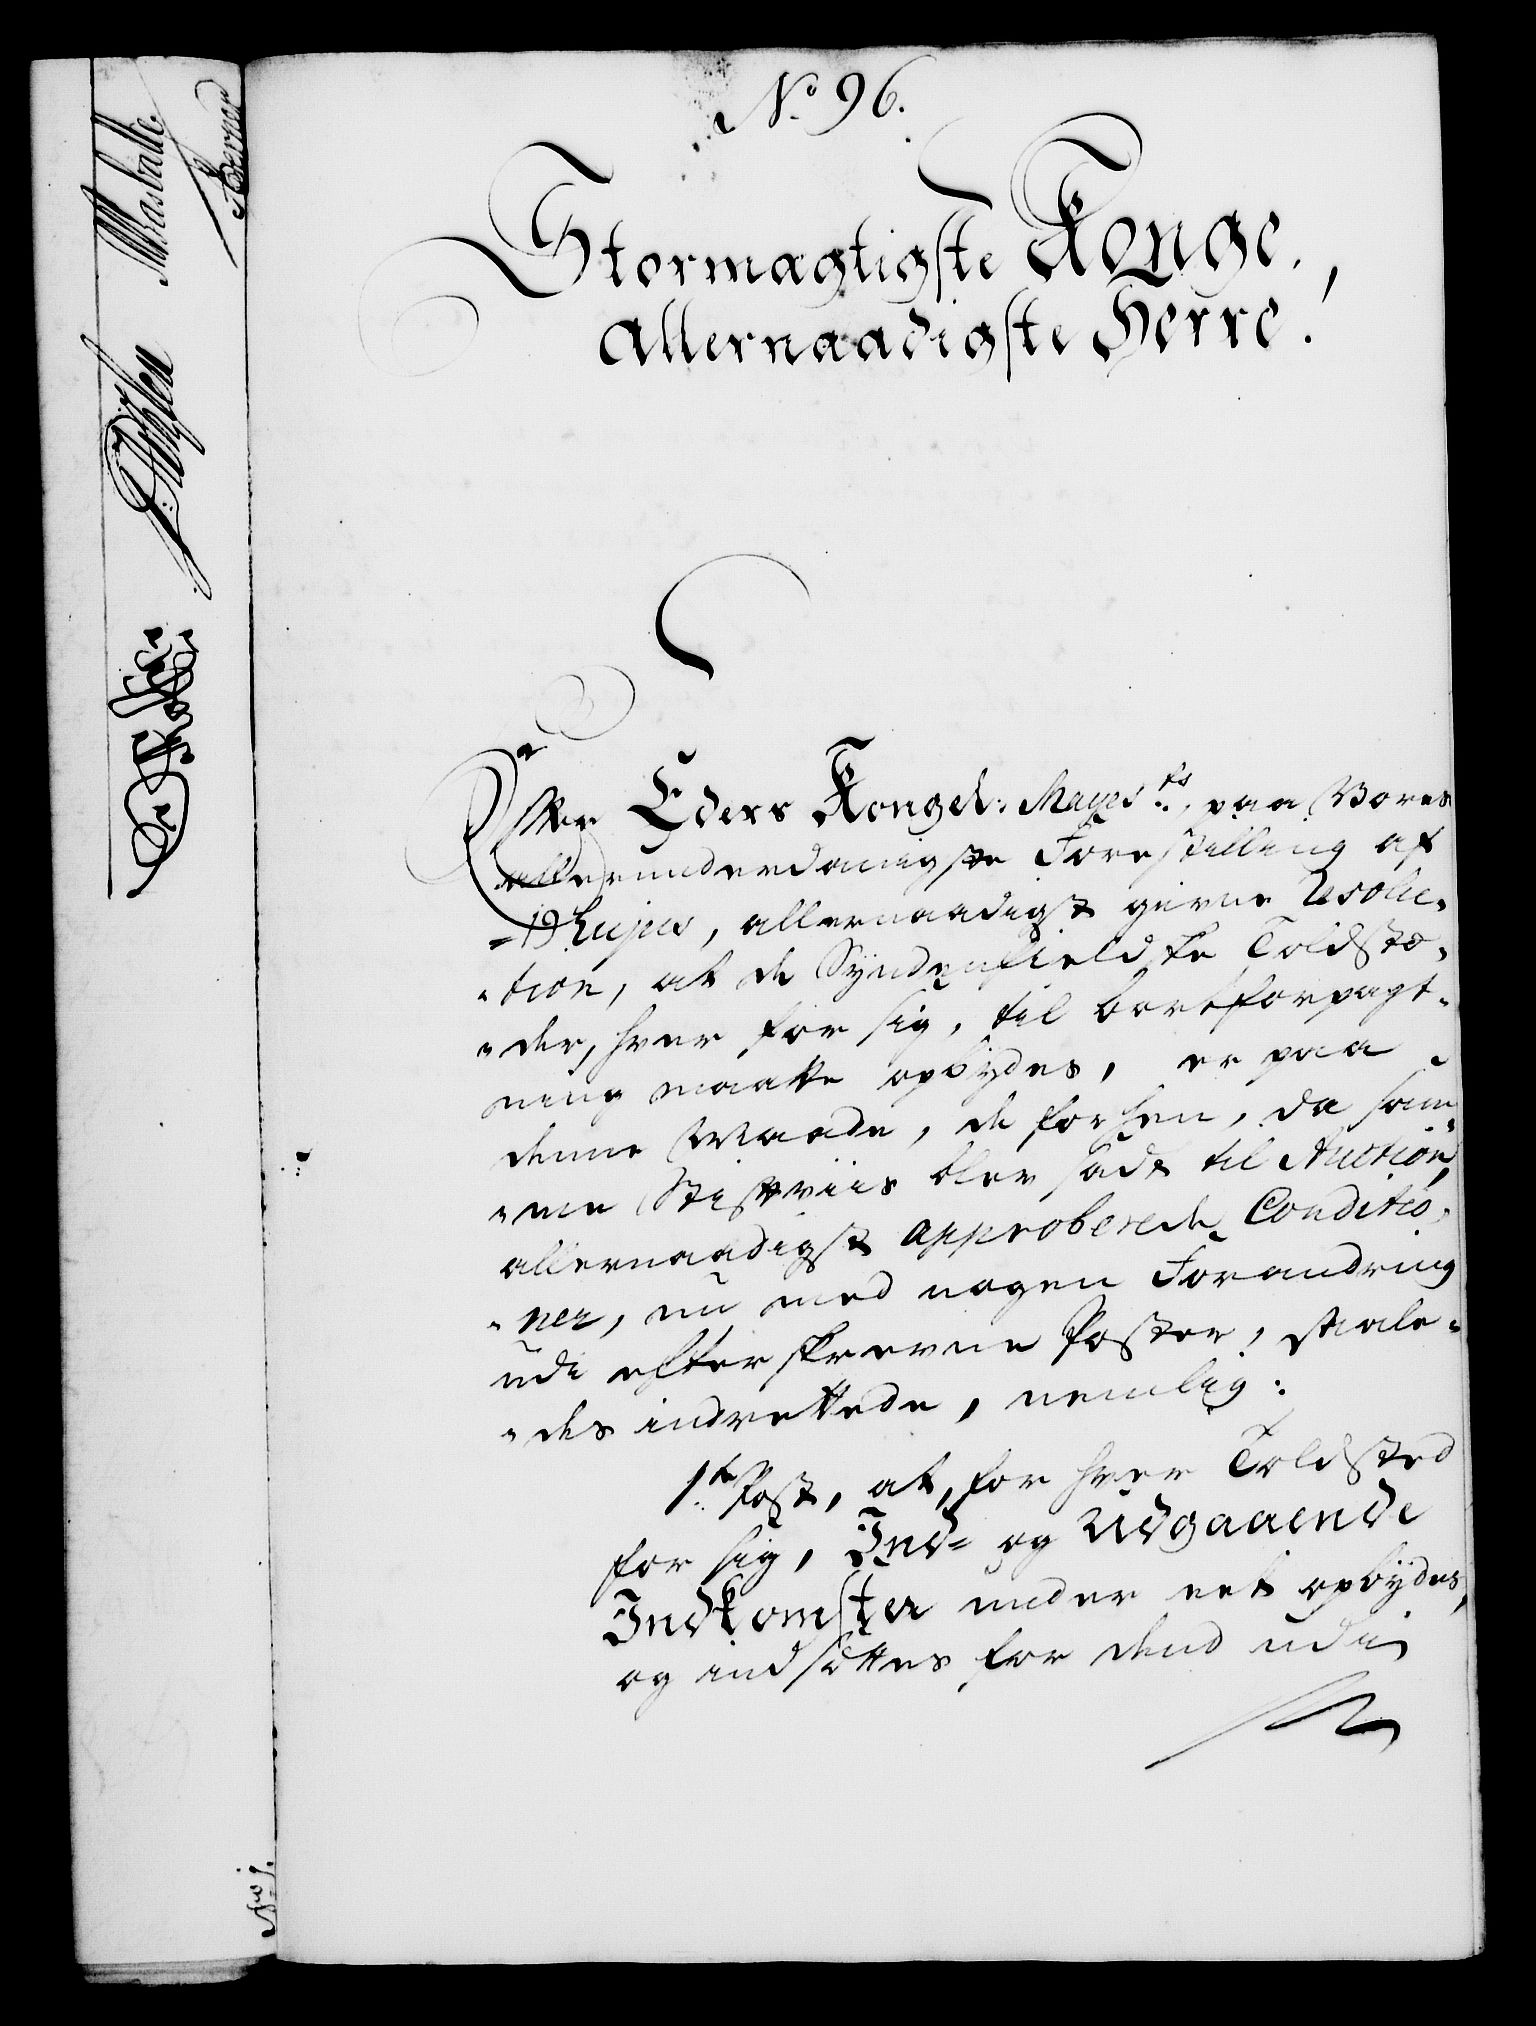 No 96.
Stormægtigste Konge,
Allernaadigste Herre.
Efter Eders Kongel: Mayes:ts, paa Vores
allerunderdanigste Forestilling af
19 hujus, allernaadigst givne Resolu-
-tion, at de Syndenfieldske Toldstæ-
-der, hver for sig, til bortforpagt-
ning maatte opbydes, er paa
denne Maade, de forhen, da sam-
-me Stiftviis blev sadt til Auction,
allernaadigst approberede Conditio-
-ner, nu med nogen Forandring
udi efterskrevne Poster, saale-
-des indrettede, nemlig:
1te Post, at, for hver Toldsted
for sig, Ind- og Udgaaende
Indkomster under eet opbydes,
og indsættes for dend udi
No 1.